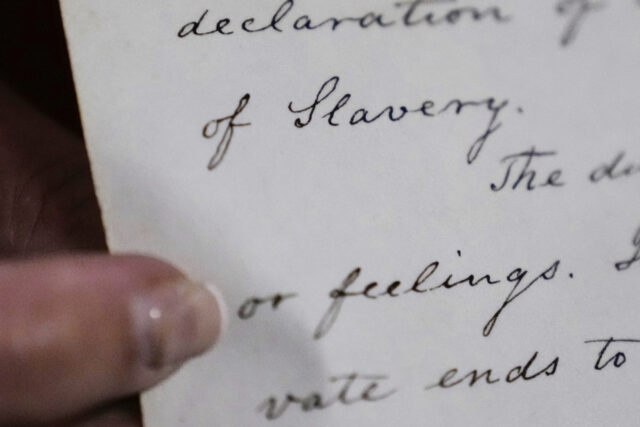 declaration of
of Slavery.
The
or feelings.
vate ends to